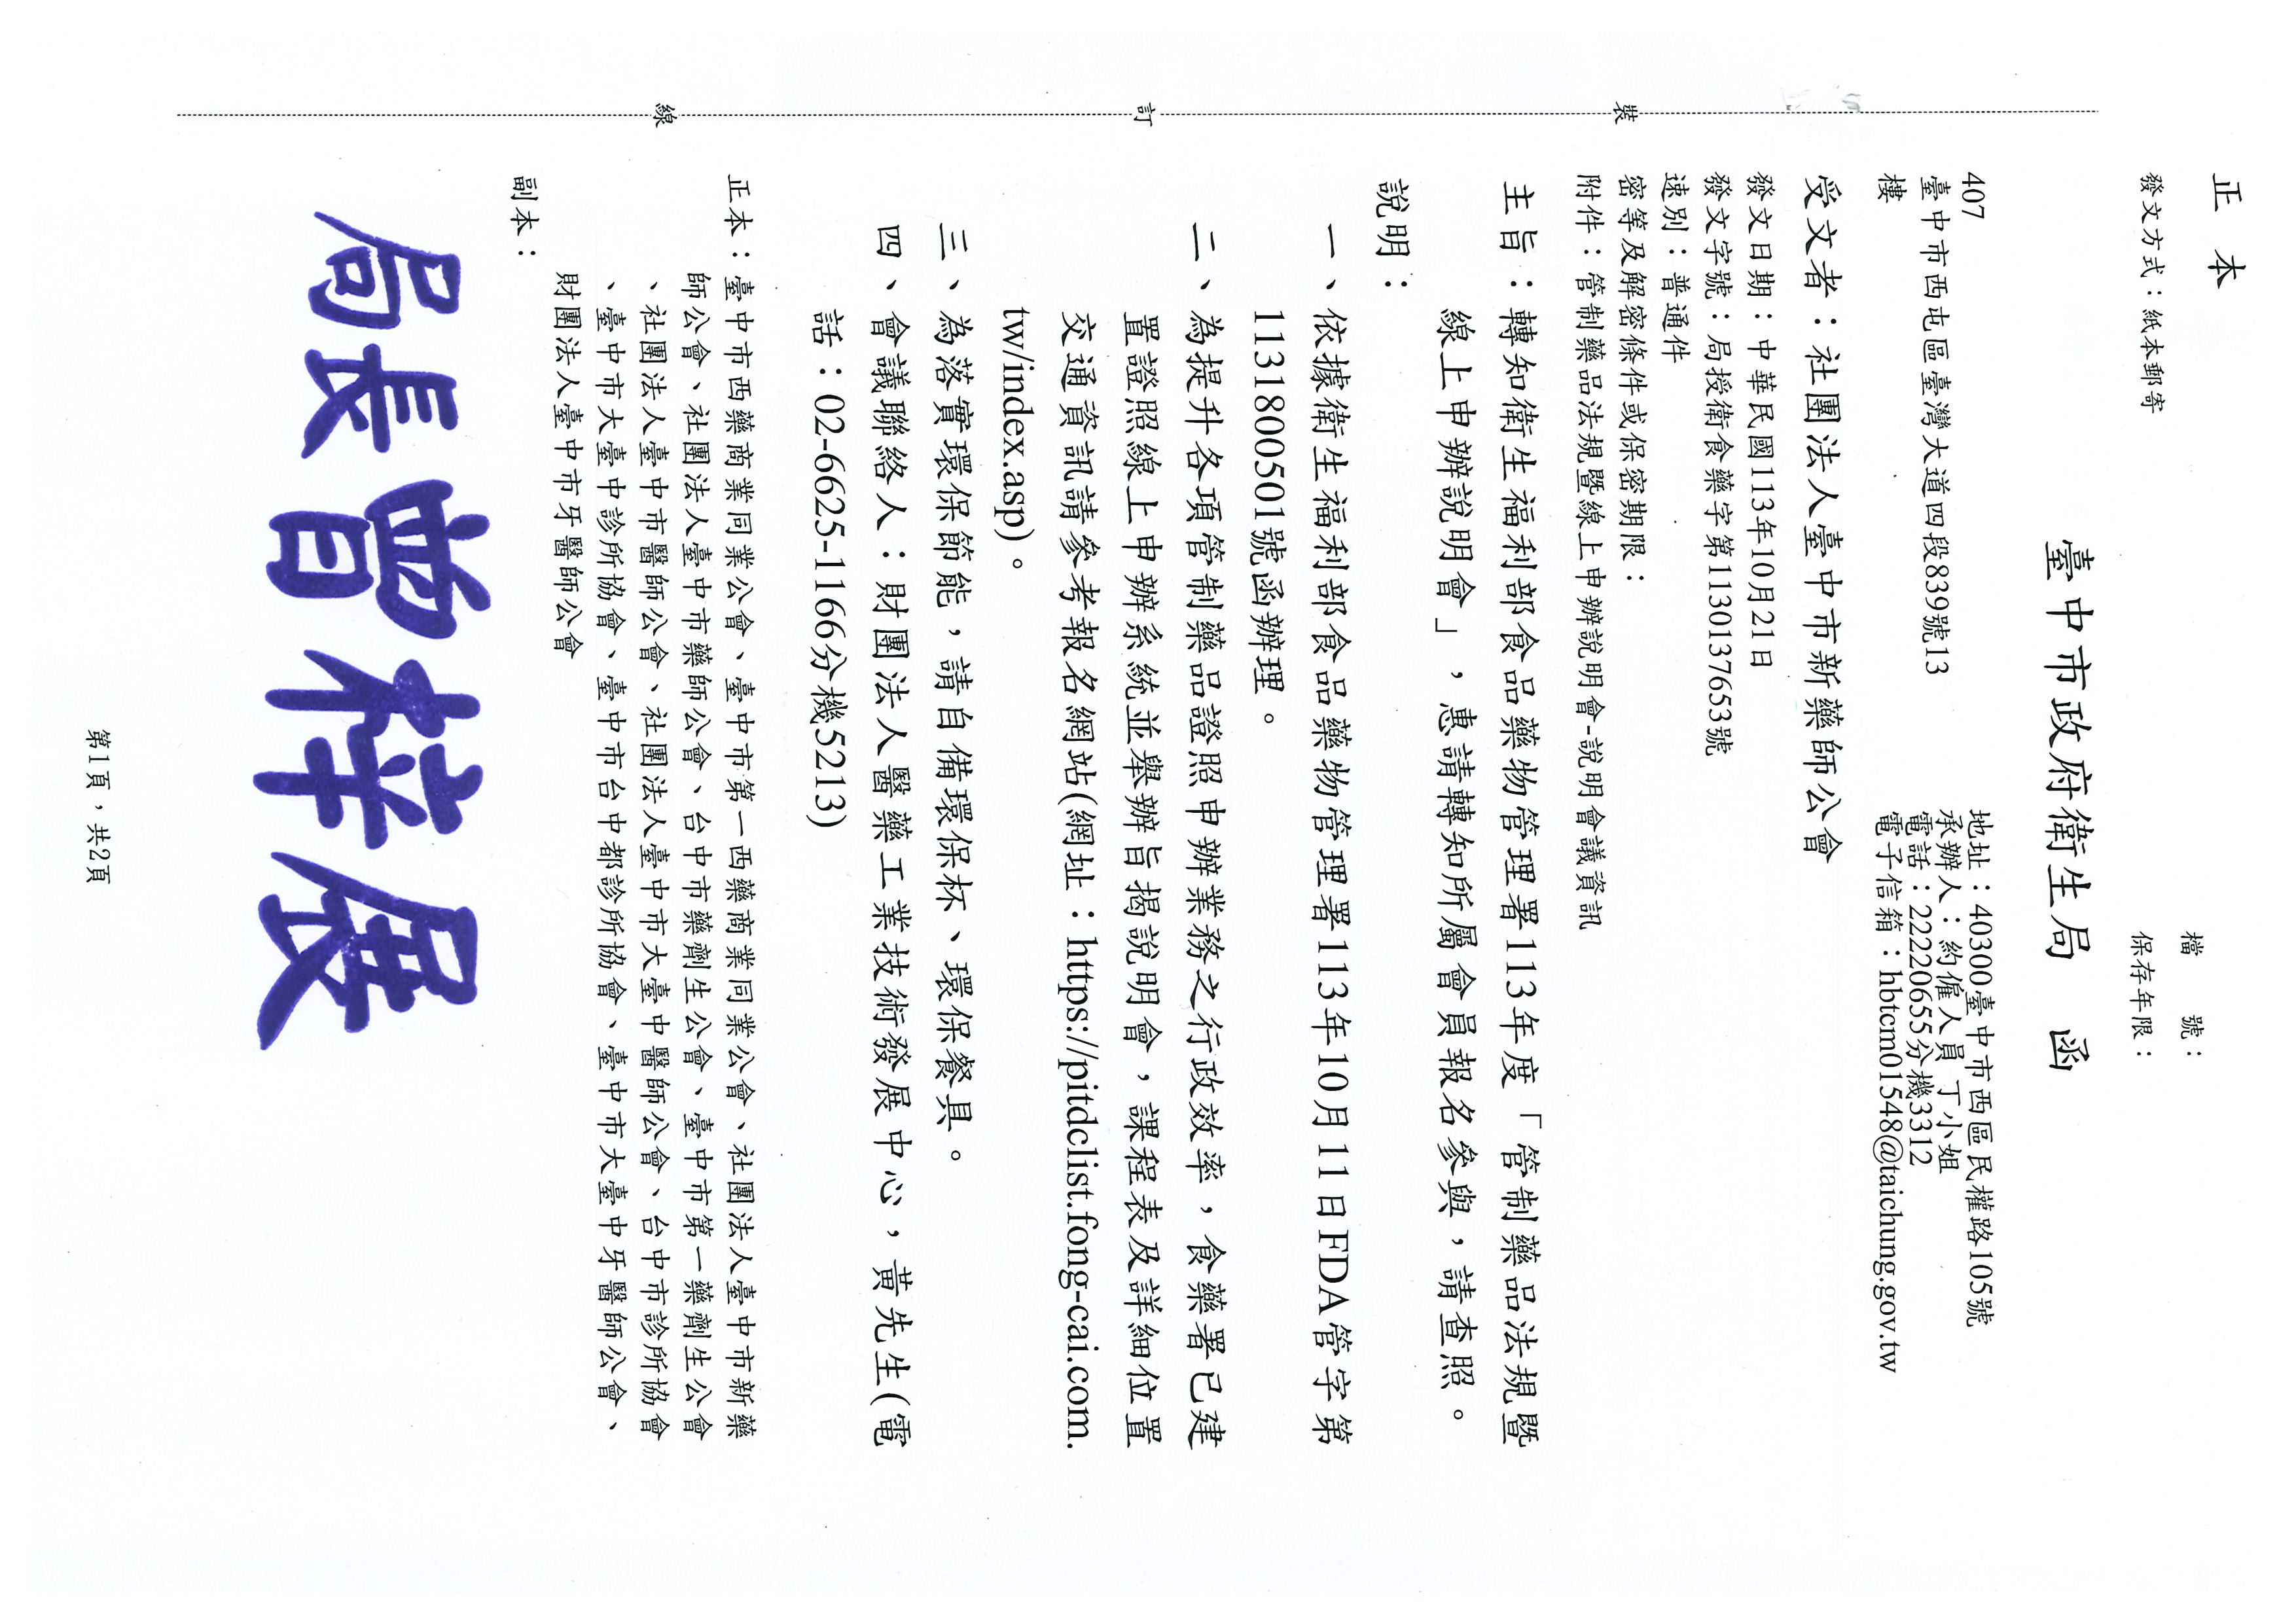 正本
檔　　號：
保存年限：
發文方式：紙本郵寄
臺中市政府衛生局　函
407
臺中市西屯區臺灣大道四段839號13
樓
地址：40300臺中市西區民權路105號
承辦人：約僱人員 丁小姐
電話：22220655分機3312
電子信箱：hbtcm01548@taichung.gov.tw
受文者：社團法人臺中市新藥師公會
發文日期：中華民國113年10月21日
發文字號：局授衛食藥字第1130137653號
速別：普通件
密等及解密條件或保密期限：
附件：管制藥品法規暨線上申辦說明會-說明會議資訊
主旨：轉知衛生福利部食品藥物管理署113年度「管制藥品法規暨
線上申辦說明會」，惠請轉知所屬會員報名參與，請查照。
說明：
一、依據衛生福利部食品藥物管理署113年10月11日FDA管字第
1131800501號函辦理。
二、為提升各項管制藥品證照申辦業務之行政效率，食藥署已建
置證照線上申辦系統並舉辦旨揭說明會，課程表及詳細位置
交通資訊請參考報名網站(網址：https://pitdclist.fong-cai.com.
tw/index.asp)。
三、為落實環保節能，請自備環保杯、環保餐具。
四、會議聯絡人：財團法人醫藥工業技術發展中心，黃先生(電
話：02-6625-1166分機5213)
正本：臺中市西藥商業同業公會、臺中市第一西藥商業同業公會、社團法人臺中市新藥
師公會、社團法人臺中市藥師公會、台中市藥劑生公會、臺中市第一藥劑生公會
、社團法人臺中市醫師公會、社團法人臺中市大臺中醫師公會、台中市診所協會
、臺中市大臺中診所協會、臺中市台中都診所協會、臺中市大臺中牙醫師公會、
財團法人臺中市牙醫師公會
副本：
局長曾梓展
第1頁，共2頁
裝
訂
線